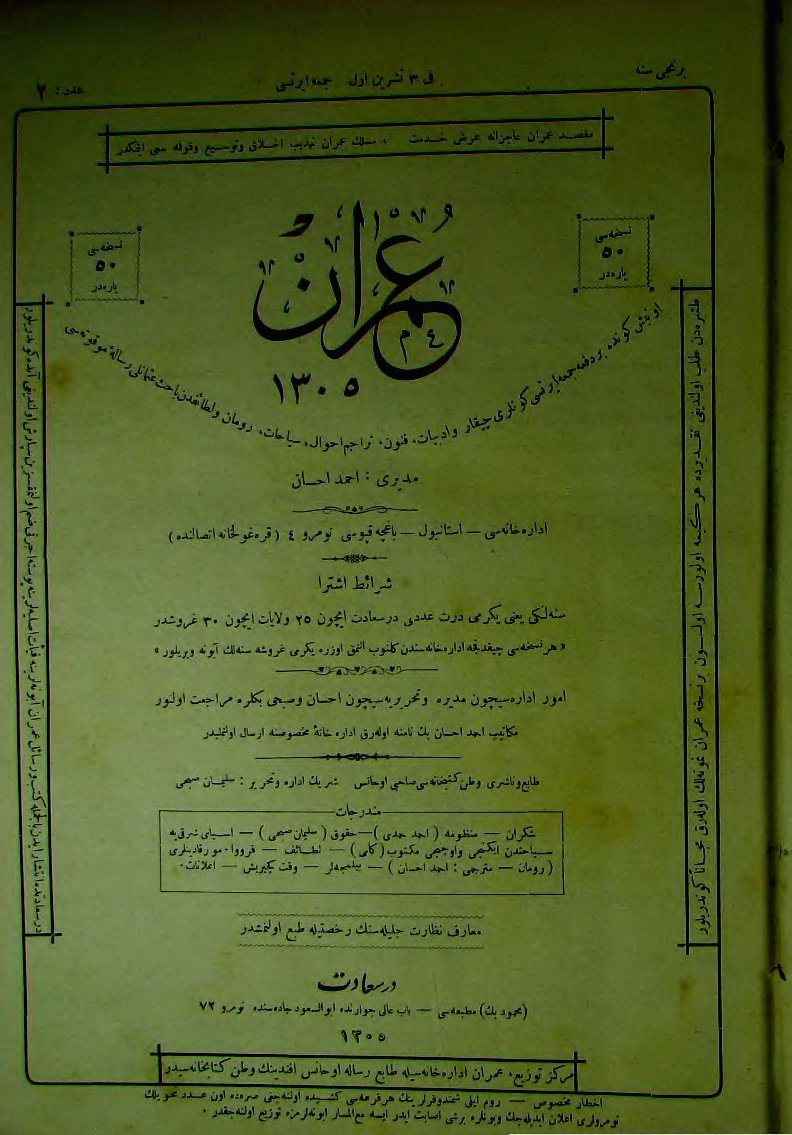 برنجی سنه
فی ٣ تشرین اول جمعه ایرتسی
عدد : ٢
مقصد عمران عاجزانه عرض خدمت ، مسلك عمران تهذیب اخلاق وتوسیع وقوفه سعی ایتمكدر
نسخه‌سی
٥٠
پاره‌در
نسخه‌سی
٥٠
پاره‌در
عمران
١٣٠٥
اون بش كونده بر دفعه جمعه ایرتسی كونلری چیقار وادبیات، فنون، تراجم احوال، سیاحات، رومان ولطائفدن باحث عثمانلی رساله موقوته‌سی
مدیری : احمد احسان
اداره‌خانه‌سی — استانبول — باغچه قپوسی نومرو ٤ (قره‌غولخانه اتصالنده)
شرائط اشترا
سنه‌لكی یعنی یكرمی درت عددی درسعادت ایچون ٢٥ ولایات ایچون ٣٠ غروشدر
« هر نسخه‌سی چیقدقجه اداره‌خانه‌سندن كلنوب النمق اوزره یكرمی غروشه سنه‌لك آبونه ویریلور »
امور اداره‌سیچون مدیره وتحریریه‌سیچون احسان وصبحی بكلره مراجعت اولنور
مكاتیب احمد احسان بك نامنه اوله‌رق اداره خانۀ مخصوصنه ارسال اولنملیدر
طابع وناشری وطن كتبخانه‌سی صاحبی اوهانس شریك اداره وتحریر : سلیمان صبحی
مندرجات
شكران — منظومه ( احمد حمدی ) — حقوق ( سلیمان صبحی ) — اسیای شرقی‌یه
سیاحتدن ایكنجی واوچنجی مكتوب (كامی) — لطائف — فرووا-مور قادینلری
( رومان — مترجمی : احمد احسان ) — بیلمیجه‌لر — وقت كچیریش — اعلانات .
معارف نظارت جلیله‌سنك رخصتیله طبع اولنمشدر
درسعادت
(محمود بك) مطبعه‌سی — باب عالی جوارنده ابوالسعود جاده‌سنده نومرو ٧٢
١٣٠٥
مركز توزیع، عمران اداره‌خانه‌سیله طابع رساله اوهانس افندینك وطن كتابخانه‌سیدر
اخطار مخصوص — روم ایلی شمندوفرلرینك هر قرعه‌سی كشیده اولنه‌جغی صره‌ده اون عدد تحویلك
نومرولری اعلان ایدیله‌جك وبونلره برشی اصابت ایدر ایسه مع‌المسار ابونه‌لرمزه توزیع اولنه‌جقدر .
طشره‌دن طلب اولندیغی تقدیرده هر كیمه اولورسه اولسون بر نسخه عمران نمونه‌لك اوله‌رق مجاناً كوندریلور